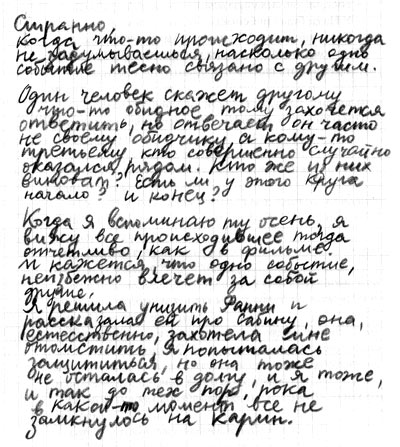 Странно,
Когда что-то происходит, никогда
не задумываешься, насколько одно
событие тесно связано с другим.
Один человек скажет другому
что-то обидное, тому захочется
ответить, но отвечает он часто
не своему обидчику, а кому-то
третьему, кто совершенно случайно
оказался рядом. Кто же из них
виноват? Есть ли у этого круга
начало? и конец?
Когда я вспоминаю ту осень, я
вижу все происходившее тогда
отчетливо, как в фильме.
И кажется, что одно событие,
неизбежно влечет за собой
другие.
Я решила унизить Фанни и
рассказала ей про Сабину, она,
естественно, захотела мне
отомстить, я попыталась
защититься, но она тоже
не осталась в долгу, и я тоже,
и так до тех пор, пока
в какой-то момент все не
замкнулось на Карин.